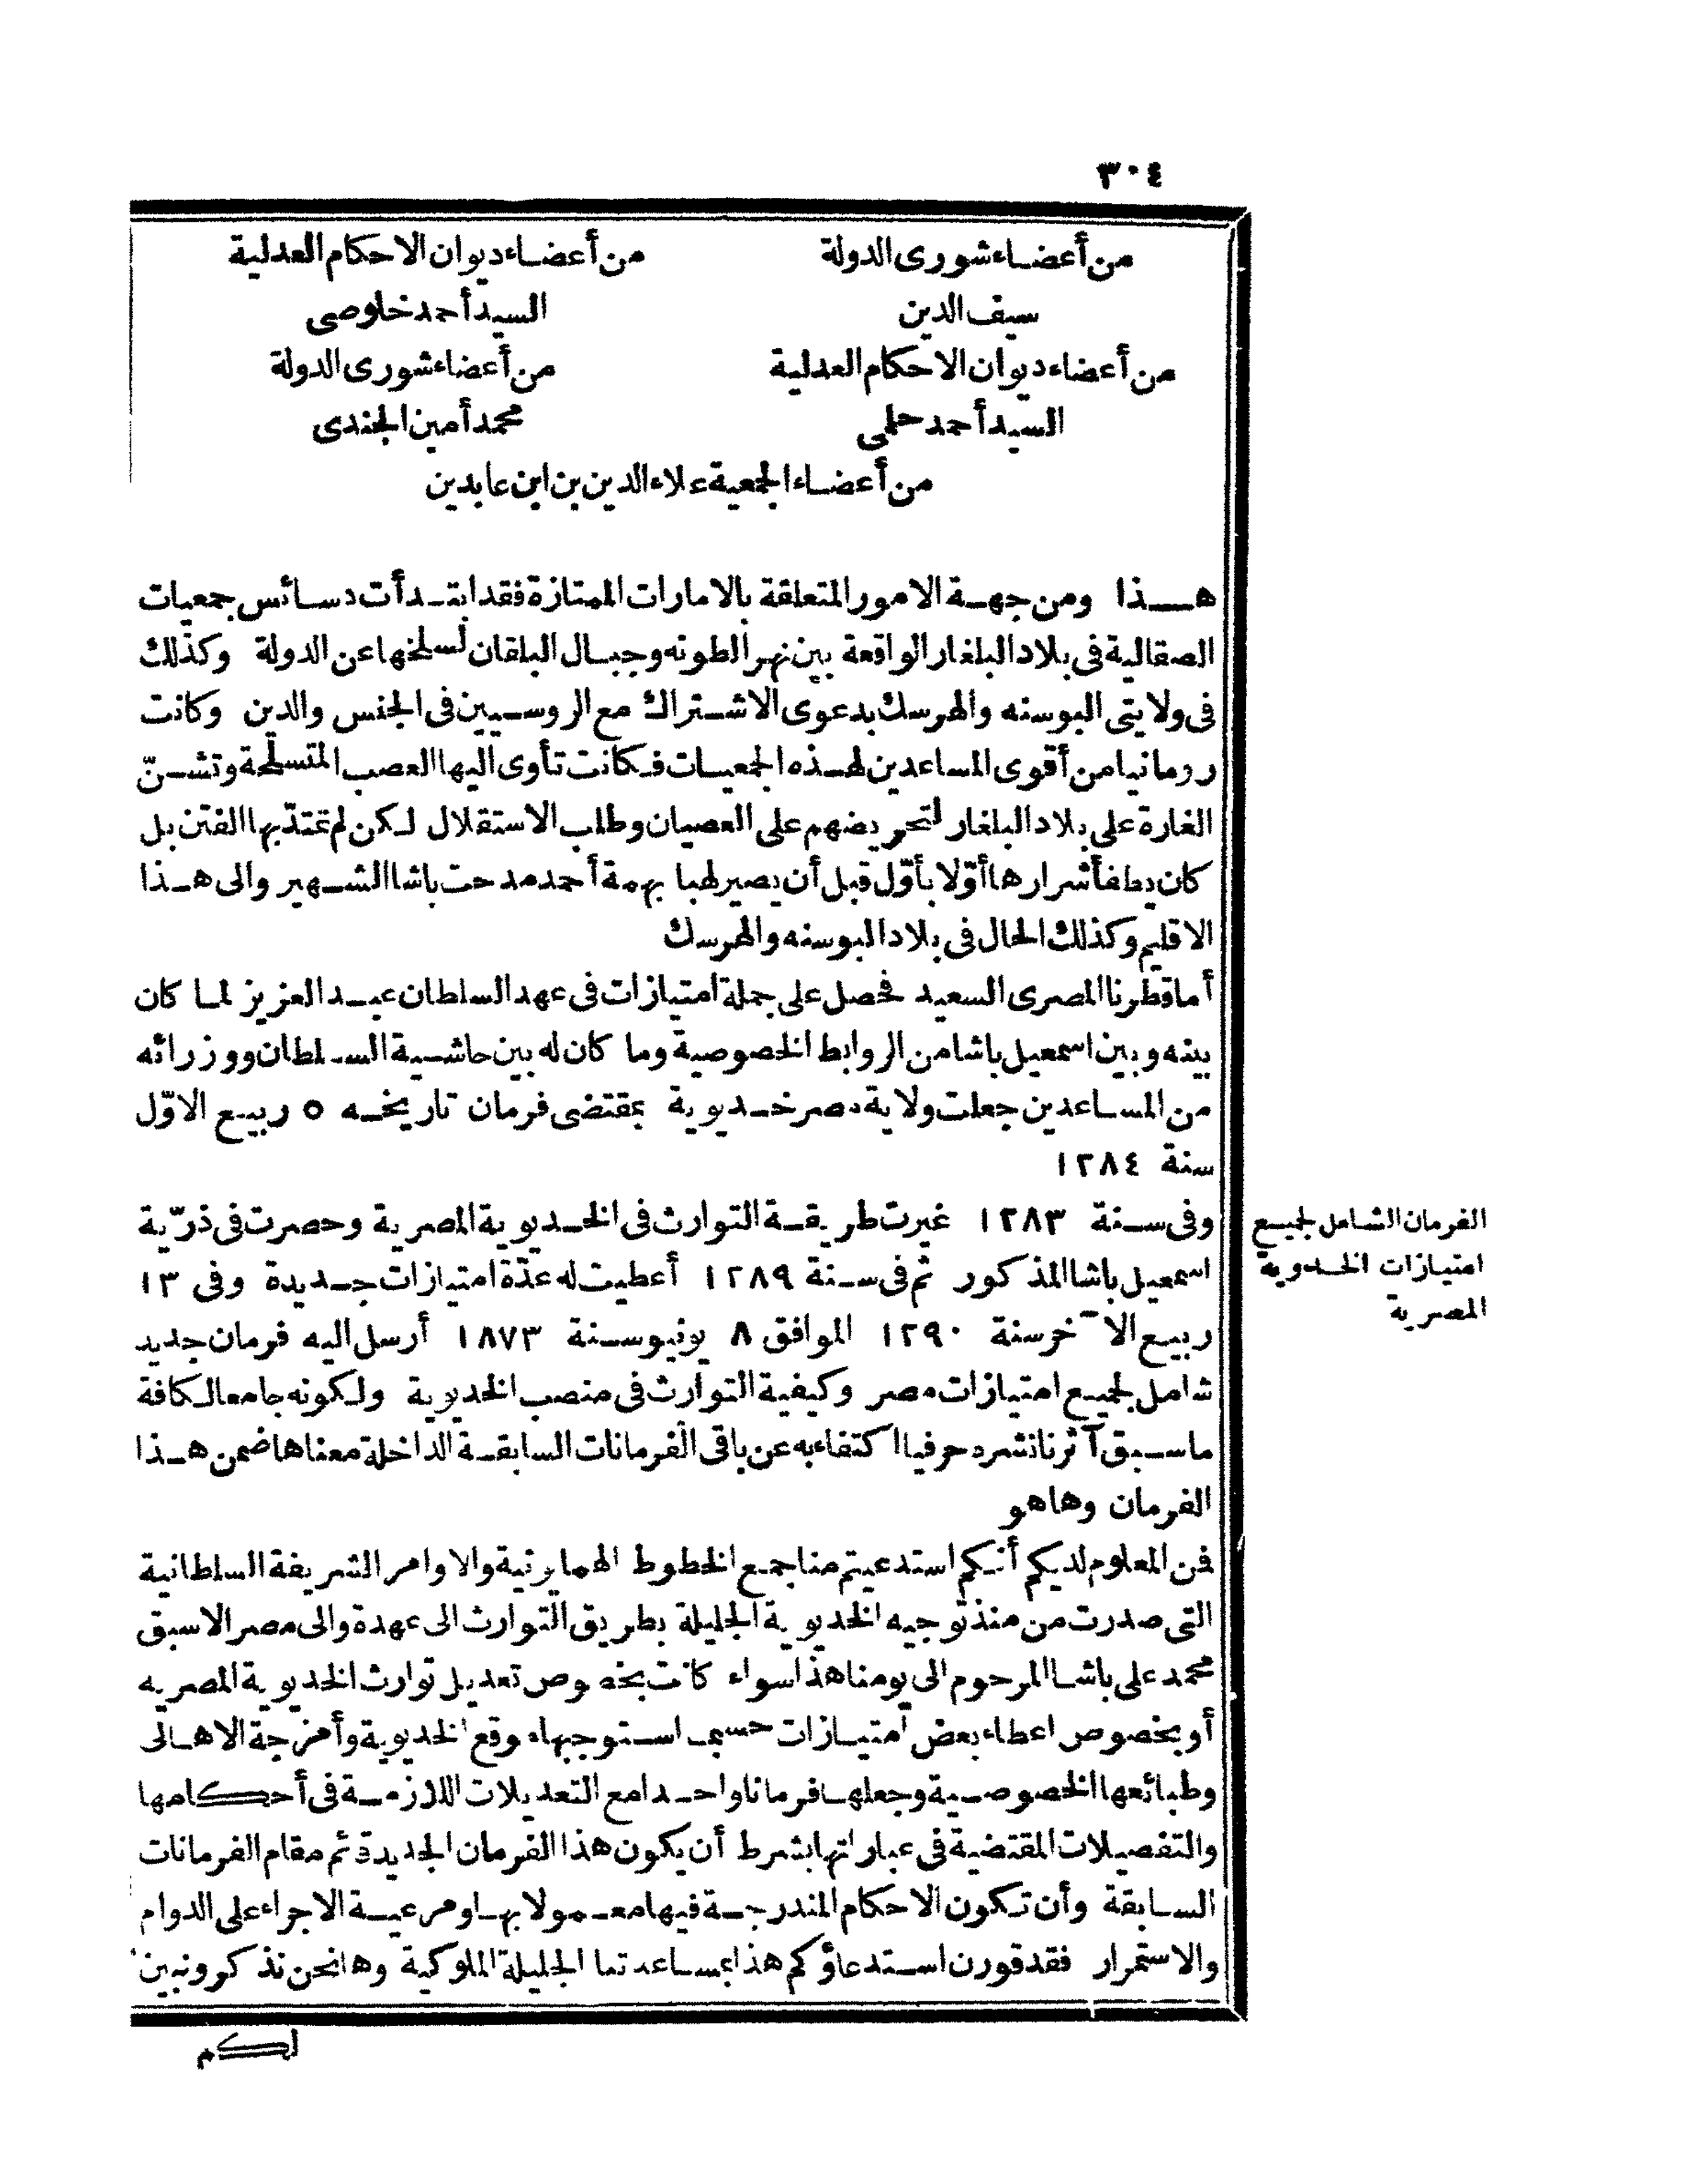 ٣٠٤
من أعضاء شورى الدولة
من أعضاء ديوان الاحكام العدلية
سيف الدين
السيد أحمد خلوصى
من أعضاء ديوان الاحكام العدلية
من أعضاء شورى الدولة
السيد أحمد حلمى
محمد أمين الجندى
من أعضاء الجمعية علاء الدين بن ابن عابدين
هذا ومن جهة الامور المتعلقة بالامارات الممتازة فقد ابتدأت دسائس جمعيات
الصقالية فى بلاد البلغار الواقعة بين نهر الطونه وجبال البلقان لسلخها عن الدولة وكذلك
فى ولايتى البوسنه والهرسك بدعوى الاشتراك مع الروسيين فى الجنس والدين وكانت
رومانيا من أقوى المساعدين لهذه الجمعيات فكانت تأوى اليها العصب المتسلحة وتشنّ
الغارة على بلاد البلغار لتحريضهم على العصيان وطلب الاستقلال لكن لم تمتدّ بها الفتن بل
كان يطفأ شرارها أوّلا بأوّل قبل أن يصير لهبا بهمة أحمد مدحت باشا الشهير والى هذا
الاقليم وكذلك الحال فى بلاد البوسنه والهرسك
أما قطرنا المصرى السعيد فحصل على جملة امتيازات فى عهد السلطان عبد العزيز لما كان
بينه وبين اسمعيل باشا من الروابط الخصوصية وما كان له بين حاشية السلطان ووزرائه
من المساعدين جعلت ولاية مصر خديوية بمقتضى فرمان تاريخه ٥ ربيع الاوّل
سنة ١٢٨٤
وفى سنة ١٢٨٣ غيرت طريقة التوارث فى الخديوية المصرية وحصرت فى ذرّية
اسمعيل باشا المذكور ثم فى سنة ١٢٨٩ أعطيت له عدّة امتيازات جديدة وفى ١٣
ربيع الآخر سنة ١٢٩٠ الموافق ٨ يونيو سنة ١٨٧٣ أرسل اليه فرمان جديد
شامل لجميع امتيازات مصر وكيفية التوارث فى منصب الخديوية ولكونه جامعا لكافة
ما سبق آثرنا نشره حرفيا اكتفاء به عن باقى الفرمانات السابقة الداخلة معناها ضمن هذا
الفرمان وها هو
فمن المعلوم لديكم أنكم استدعيتم منا جمع الخطوط الهمايونية والاوامر الشريفة السلطانية
التى صدرت من منذ توجيه الخديوية الجليلة بطريق التوارث الى عهدة والى مصر الاسبق
محمد على باشا المرحوم الى يومنا هذا سواء كانت بخصوص تعديل توارث الخديوية المصريه
أو بخصوص اعطاء بعض امتيازات حسبما استوجبها موقع الخديوية وأمزجة الاهالى
وطبائعها الخصوصية وجعلها فرمانا واحدا مع التعديلات اللازمة فى أحكامها
والتفصيلات المقتضية فى عباراتها بشرط أن يكون هذا الفرمان الجديد قائم مقام الفرمانات
السابقة وأن تكون الاحكام المندرجة فيها معمولا بها ومرعية الاجراء على الدوام
والاستمرار فقد قورن استدعاؤكم هذا بمساعدتنا الجليلة الملوكية وها نحن نذكر ونبين
لكم
الفرمان الشامل لجميع
امتيازات الخديوية
المصرية